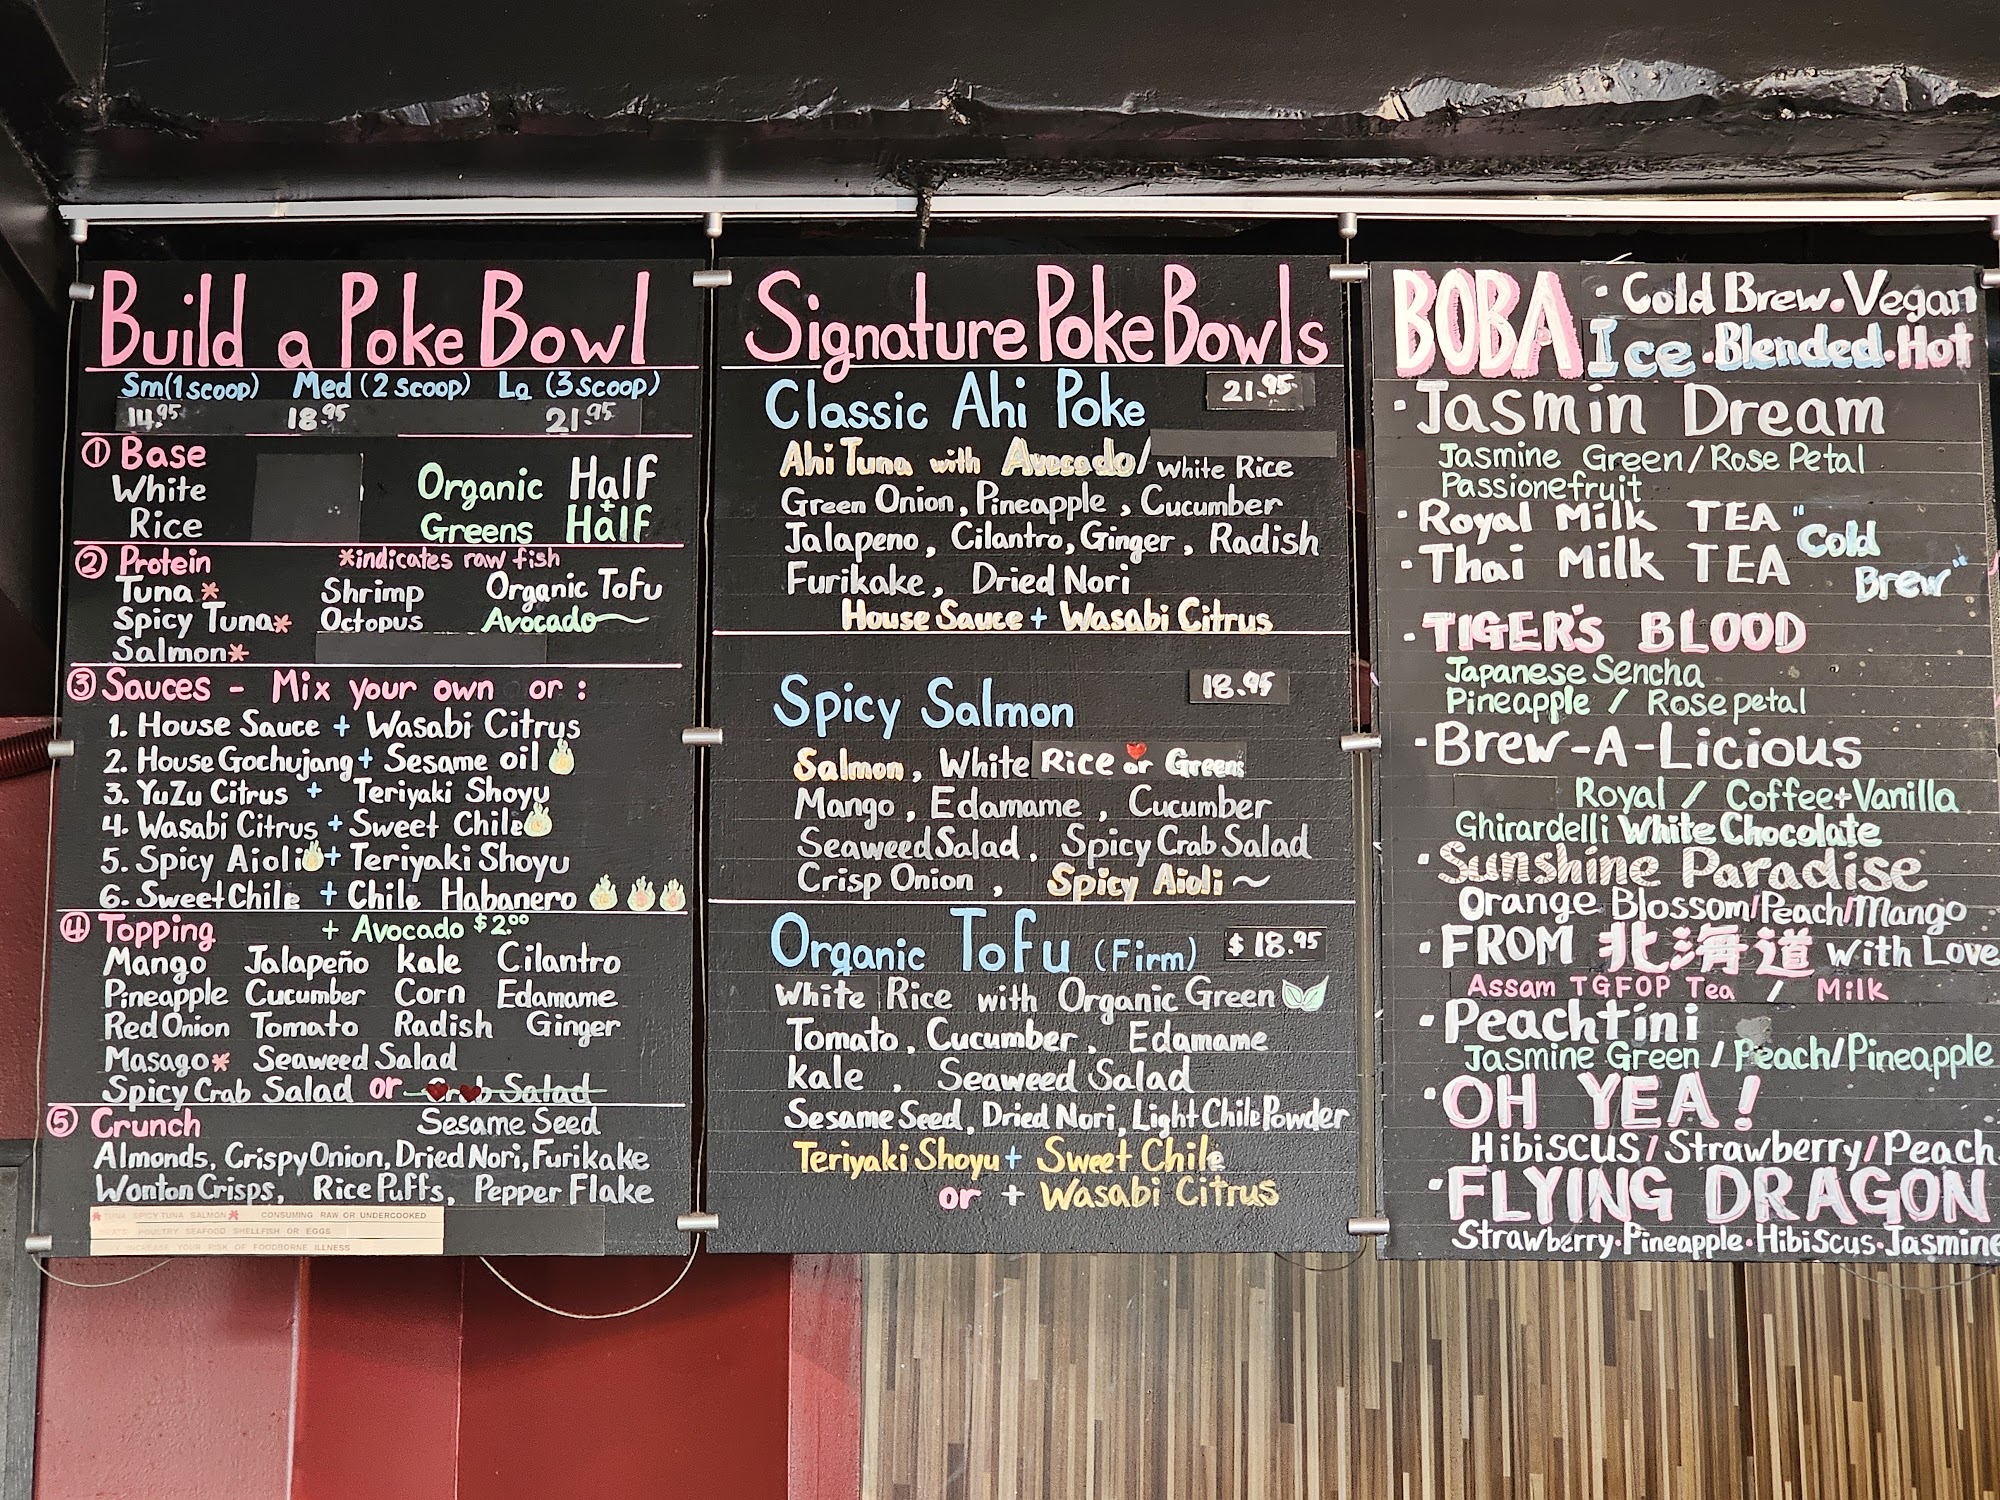 Build a Poke Bowl
Sm(1scoop) Med (2 scoop) La (3scoop)
14.95 18.95 21.95
① Base
White Organic Half
+
Rice Greens Half
② Protein *indicates raw fish
Tuna * Shrimp Organic Tofu
Spicy Tuna* Octopus Avocado
Salmon*
③ Sauces - Mix your own or :
1. House Sauce + Wasabi Citrus
2. House Gochujang + Sesame oil
3. YuZu Citrus + Teriyaki Shoyu
4. Wasabi Citrus + Sweet Chile
5. Spicy Aioli + Teriyaki Shoyu
6. Sweet Chile + Chile Habanero
④ Topping + Avocado $2.00
Mango Jalapeño kale Cilantro
Pineapple Cucumber Corn Edamame
Red Onion Tomato Radish Ginger
Masago* Seaweed Salad
Spicy Crab Salad or Salad
⑤ Crunch Sesame Seed
Almonds, Crispy Onion, Dried Nori, Furikake
Wonton Crisps, Rice Puffs, Pepper Flake
SPICY TUNA SALMON* CONSUMING RAW OR UNDERCOOKED
POULTRY SEAFOOD SHELLFISH OR EGGS
INCREASE YOUR RISK OF FOODBORNE ILLNESS
Signature Poke Bowls
Classic Ahi Poke 21.95
Ahi Tuna with Avocado/ White Rice
Green Onion, Pineapple , Cucumber
Jalapeno , Cilantro, Ginger , Radish
Furikake, Dried Nori
House Sauce + Wasabi Citrus
Spicy Salmon 18.95
Salmon, White Rice or Greens
Mango , Edamame , Cucumber
Seaweed Salad, Spicy Crab Salad
Crisp Onion , Spicy Aioli ~
Organic Tofu (Firm) $18.95
White Rice with Organic Green
Tomato, Cucumber, Edamame
kale , Seaweed Salad
Sesame Seed, Dried Nori, Light Chile Powder
Teriyaki Shoyu + Sweet Chile
or + Wasabi Citrus
BOBA · Cold Brew · Vegan
Ice · Blended · Hot
· Jasmin Dream
Jasmine Green / Rose Petal
Passionefruit
· Royal Milk TEA "Cold
· Thai Milk TEA Brew"
· TIGER'S BLOOD
Japanese Sencha
Pineapple / Rose petal
· Brew-A-Licious
Royal / Coffee+Vanilla
Ghirardelli White Chocolate
· Sunshine Paradise
Orange Blossom/Peach/Mango
· FROM 北海道 with Love
Assam TGFOP Tea / Milk
· Peachtini
Jasmine Green / Peach/Pineapple
· OH YEA!
Hibiscus / Strawberry / Peach
· FLYING DRAGON
Strawberry · Pineapple · Hibiscus · Jasmine